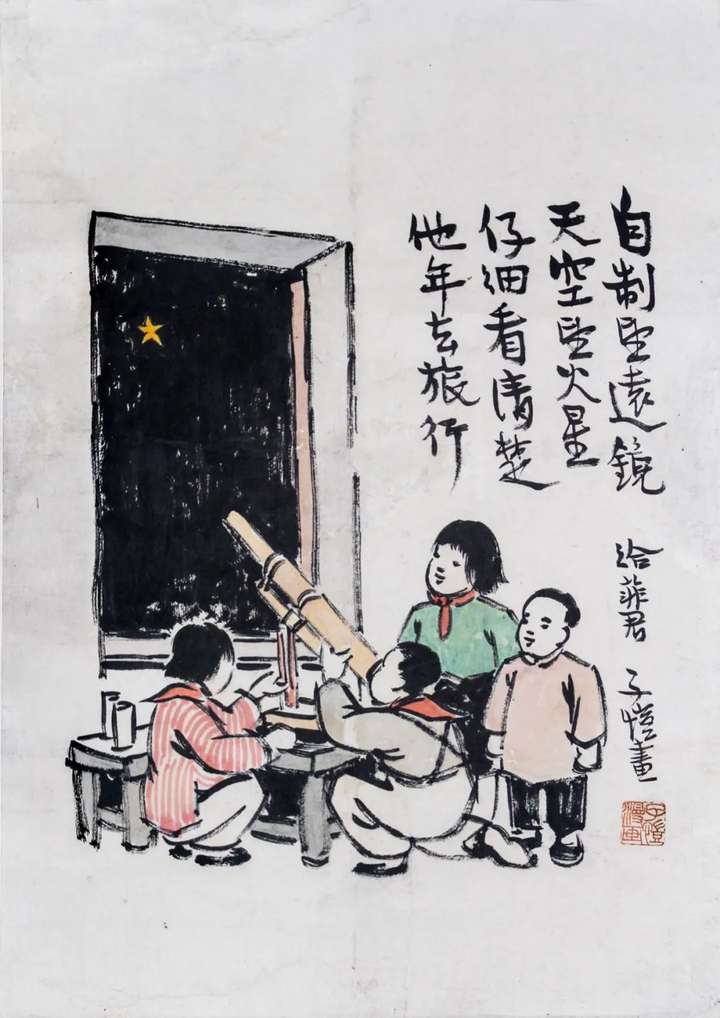 自制望远镜
天空望火星
仔细看清楚
他年去旅行
给菲君 子恺画
子恺漫画